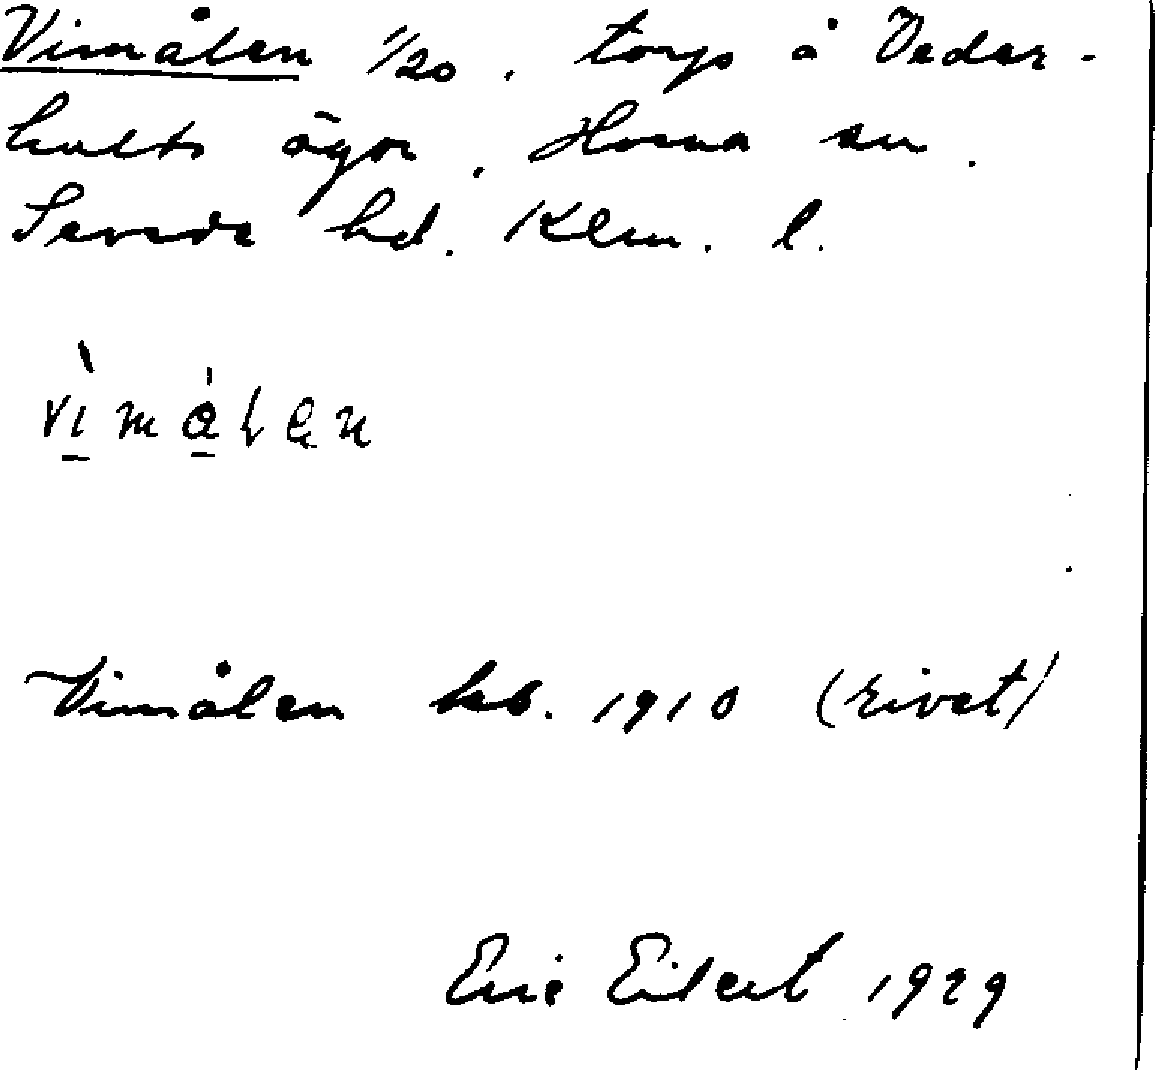 Vimålen 1/20. torp å Veder-
hults ägor. Hvena sn.
Sevede hd. Klm. l.
vìmå̀len
Vimålen hsb. 1910 (rivet)
Eric Eilert 1929